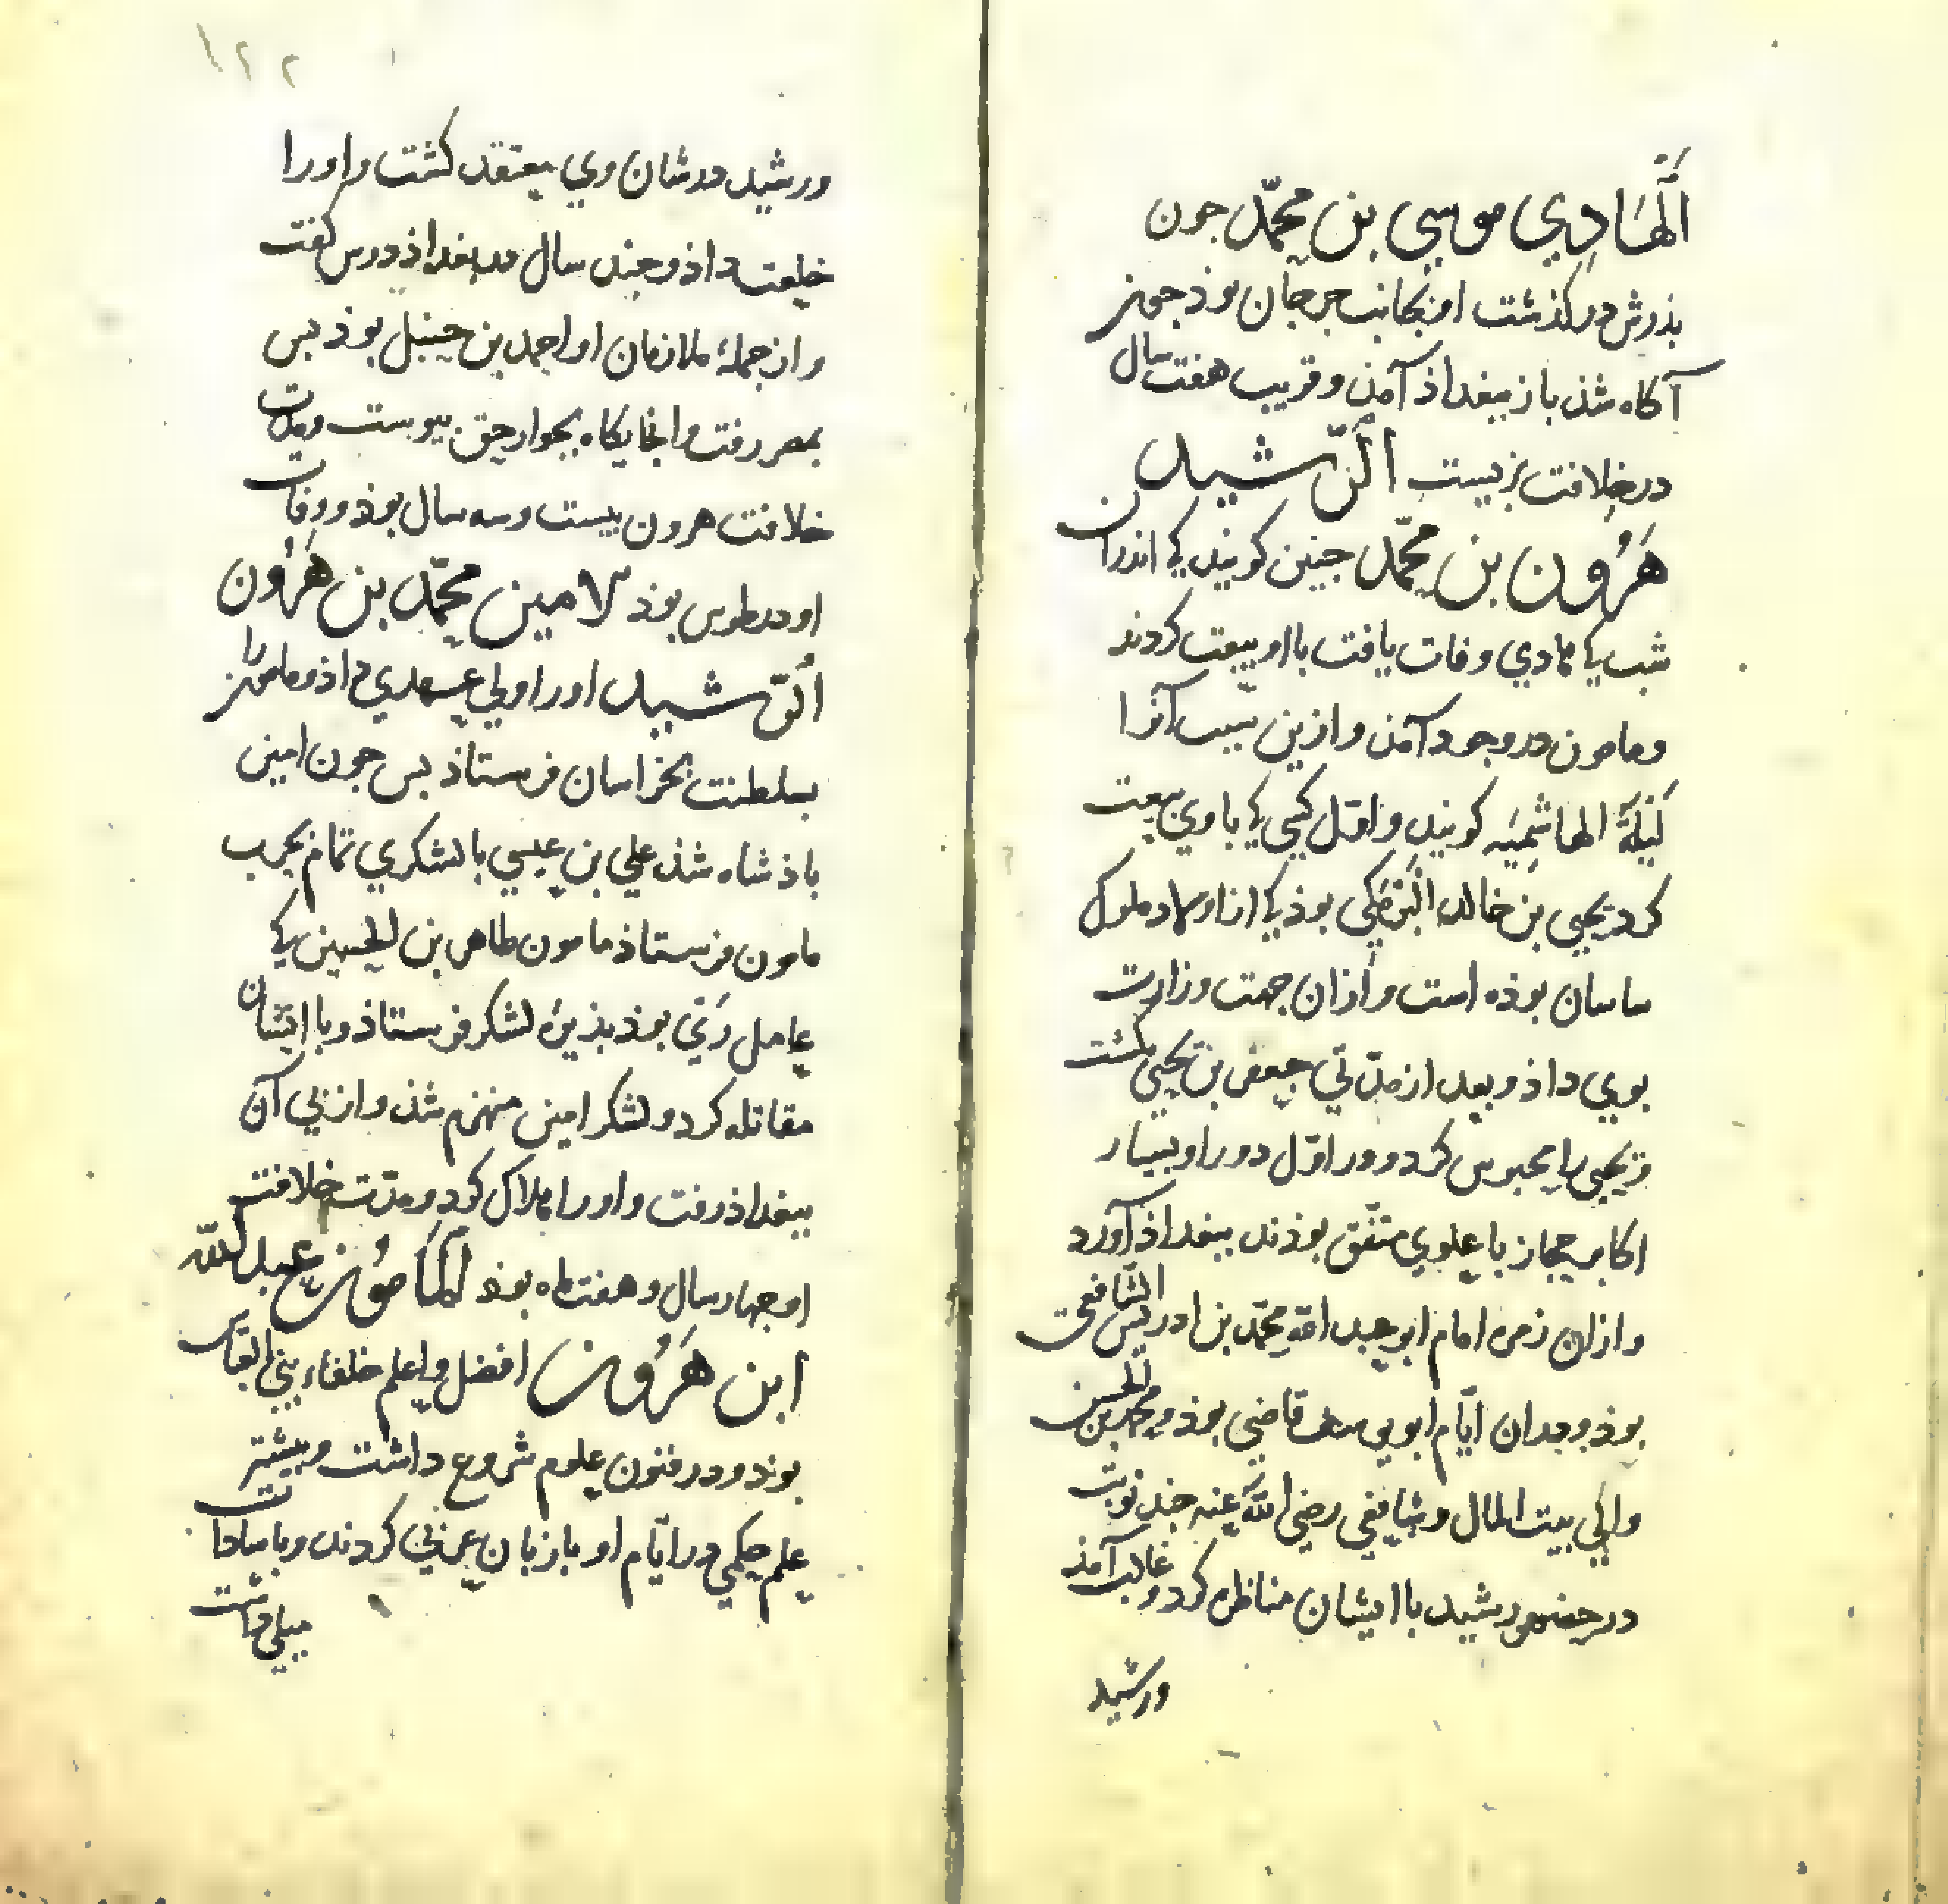 اَلْهَادِي موسي بن محمّد جون
بذرش در كذشت او بجانب جرجان بوذ جون
آكاه شذ باز ببغداذ آمذ و قريب هفت سال
در خلافت بزيست الرّشيد
هَرُون بن محمّد جنين كويند كي اندران
شب كي هادي وفات يافت با او بيعت كردند
و مامون در وجود آمذ و ازين سبب آنرا
لَيْلَةُ الهاشميَه كويند و اوّل كسي كي با وي بيعت
كرد يحيي بن خالد البَرْمَكي بوذ كي از اولاد ملوك
ساسان بوذه است و ازان جهت وزارت
بوي داذ و بعد از مدّتي جعفر بن يحيي بكشت
و يحيي را محبوس كرد و در اوّل دور او بسيار
اكابر حجاز با علوي متّفق بوذند ببغداذ آورد
و ازان زمره امام ابو عبد الله محمّد بن ادريس الشافعي
بوذ و بدان ايّام ابو يوسف قاضي بوذ و محمد بن الحسن
والي بيت المال و شافعي رضي الله عنه جند نوبت
در حضور رشيد با ايشان مناظره كرد و غالب آمذ
ورشيد
١٢٢
و رشيد در شان وي معتقد كشت و او را
خلعت داذ و جند سال در بغداذ درس كفت
و از جملهٔ ملازمان او احمد بن حنبل بوذ بس
بمصر رفت و آنجايكاه بجوار حق بيوست و مدت
خلافت هرون بيست و سه سال بوذ و وفات
او در طوس بوذ الامين محمّد بن هَرُون
الرّشيد او را ولي عهدي داذ و مامون را
بسلطنت بخراسان فرستاذ بس جون امين
باذشاه شذ علي بن عيسي با لشكري تمام بحرب
مامون فرستاذ مامون طاهر بن الحسين كي
عامل ري بوذ بذيرهٔ لشكر فرستاذ و با ايشان
مقاتله كرد و لشكر امين منهزم شذ و از بي آن
ببغداذ رفت و او را هلاك كرد و مدّت خلافت
او جهار سال و هفت ماه بوذ المامُون عبد الله
ابن هَرُون افضل و اعلم خلفاء بني العباس
بوذ و در فنون علوم شروع داشت و بيشتر
علم حكمي در ايّام او باز زبان عربي كردند و با سادات
ميلي داشت